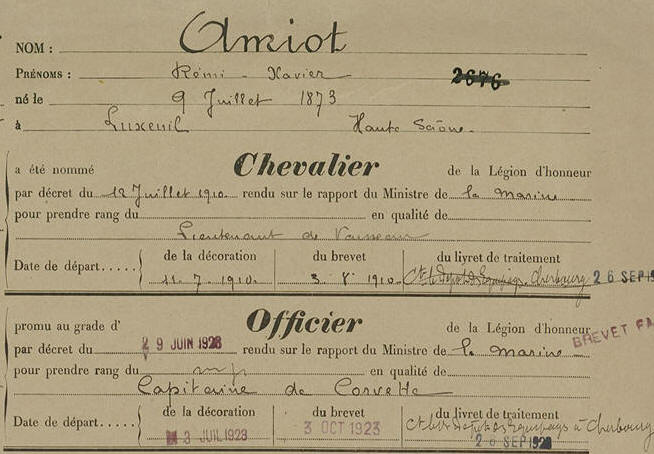 NOM : Amiot
PRÉNOMS : Rémi - Xavier 2676
né le 9 Juillet 1873
à Luxeuil Haute Saône.
a été nommé Chevalier de la Légion d'honneur
par décret du 12 Juillet 1910. rendu sur le rapport du Ministre de la marine
pour prendre rang du en qualité de
Lieutenant de Vaisseau
de la décoration du brevet du livret de traitement
Date de départ..... 11.7.1910. 3.8.1910. Cherbourg 26 SEP 19
promu au grade d' Officier de la Légion d'honneur
BREVET FA
par décret du 29 JUIN 1923 rendu sur le rapport du Ministre de la marine
pour prendre rang du en qualité de
Capitaine de Corvette
de la décoration du brevet du livret de traitement
Date de départ..... 3 JUIL 1923 3 OCT 1923 à Cherbourg
SEP 192